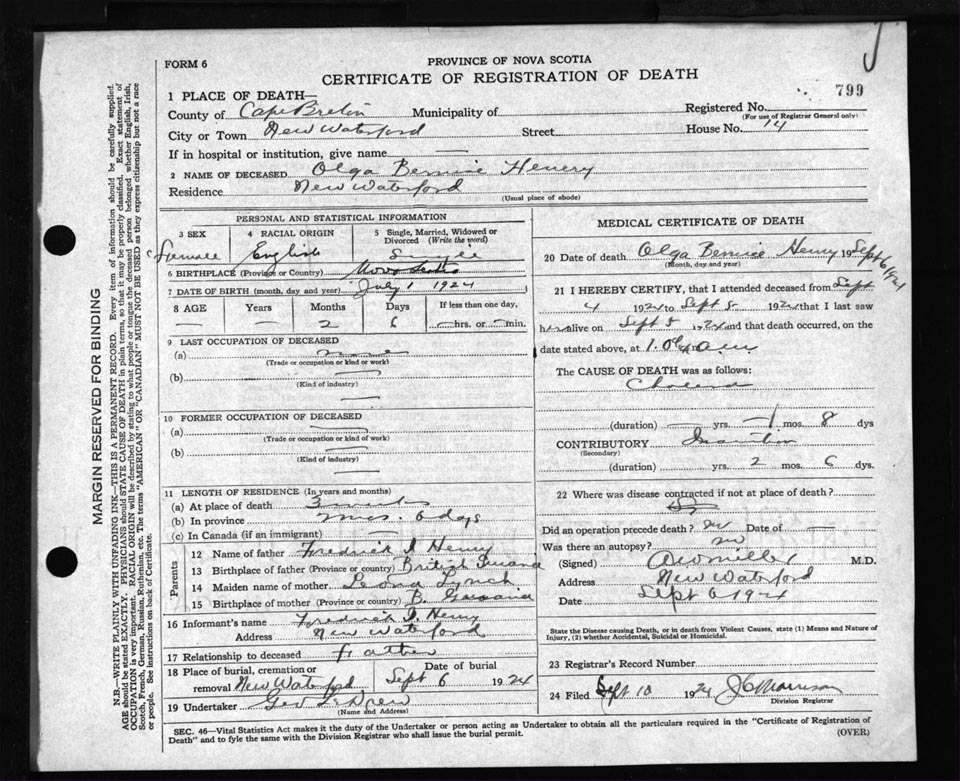 FORM 6
PROVINCE OF NOVA SCOTIA
CERTIFICATE OF REGISTRATION OF DEATH
799
1 PLACE OF DEATH—
County of Cape Breton Municipality of Registered No.
(For use of Registrar General only)
City or Town New Waterford Street House No. 14
If in hospital or institution, give name —
2 NAME OF DECEASED Olga Bernice Henery
Residence New Waterford
(Usual place of abode)
PERSONAL AND STATISTICAL INFORMATION
3 SEX 4 RACIAL ORIGIN 5 Single, Married, Widowed or Divorced (Write the word)
Female English Single
6 BIRTHPLACE (Province or Country) Nova Scotia
7 DATE OF BIRTH (month, day and year) July 1 1924
8 AGE Years Months Days If less than one day,
— — 2 6 — hrs. or — min.
9 LAST OCCUPATION OF DECEASED
(a) none
(Trade or occupation or kind or work)
(b) —
(Kind of industry)
—
10 FORMER OCCUPATION OF DECEASED
(a) —
(Trade or occupation or kind of work)
(b) —
(Kind of industry)
—
11 LENGTH OF RESIDENCE (In years and months)
(a) At place of death
(b) In province mos. 6 days
(c) In Canada (if an immigrant) —
Parents
12 Name of father Frederick J Henry
13 Birthplace of father (Province or country) British Guiana
14 Maiden name of mother Leona Lynch
15 Birthplace of mother (Province or country) B. Guiana
16 Informant's name Frederick J. Henry
Address New Waterford
17 Relationship to deceased Father
18 Place of burial, cremation or removal New Waterford Date of burial Sept 6 1924
19 Undertaker Geo
(Name and Address)
MEDICAL CERTIFICATE OF DEATH
20 Date of death Olga Bernice Henry 19 Sept 6 1924
(Month, day and year)
21 I HEREBY CERTIFY, that I attended deceased from Sept
4 1924 to Sept 5 1924 that I last saw
her alive on Sept 5 1924 and that death occurred, on the
date stated above, at 1. a.m.
The CAUSE OF DEATH was as follows:
Cholera
(duration) — yrs. — mos. 8 dys
CONTRIBUTORY Inanition
(Secondary)
(duration) yrs. 2 mos. 6 dys.
22 Where was disease contracted if not at place of death?
Did an operation precede death? no Date of —
Was there an autopsy? no
(Signed) M.D.
Address New Waterford
Date Sept 6 1924
State the Disease causing Death, or in death from Violent Causes, state (1) Means and Nature of Injury, (2) whether Accidental, Suicidal or Homicidal.
23 Registrar's Record Number
24 Filed Sept 10 1924 J C Morrison
Division Registrar
SEC. 46—Vital Statistics Act makes it the duty of the Undertaker or person acting as Undertaker to obtain all the particulars required in the "Certificate of Registration of
Death" and to fyle the same with the Division Registrar who shall issue the burial permit.
(OVER)
MARGIN RESERVED FOR BINDING
N.B.—WRITE PLAINLY WITH UNFADING INK—THIS IS A PERMANENT RECORD. Every item of information should be carefully supplied.
AGE should be stated EXACTLY. PHYSICIANS should STATE CAUSE OF DEATH in plain terms, so that it may be properly classified. Exact statement of
OCCUPATION is very important. RACIAL ORIGIN will be described by stating to what people or tongue the deceased person belonged whether English, Irish,
Scotch, French, German, Russian, Ruthenian, etc. The terms "AMERICAN" OR "CANADIAN" MUST NOT BE USED as they express citizenship but not a race
or people. See instructions on back of Certificate.